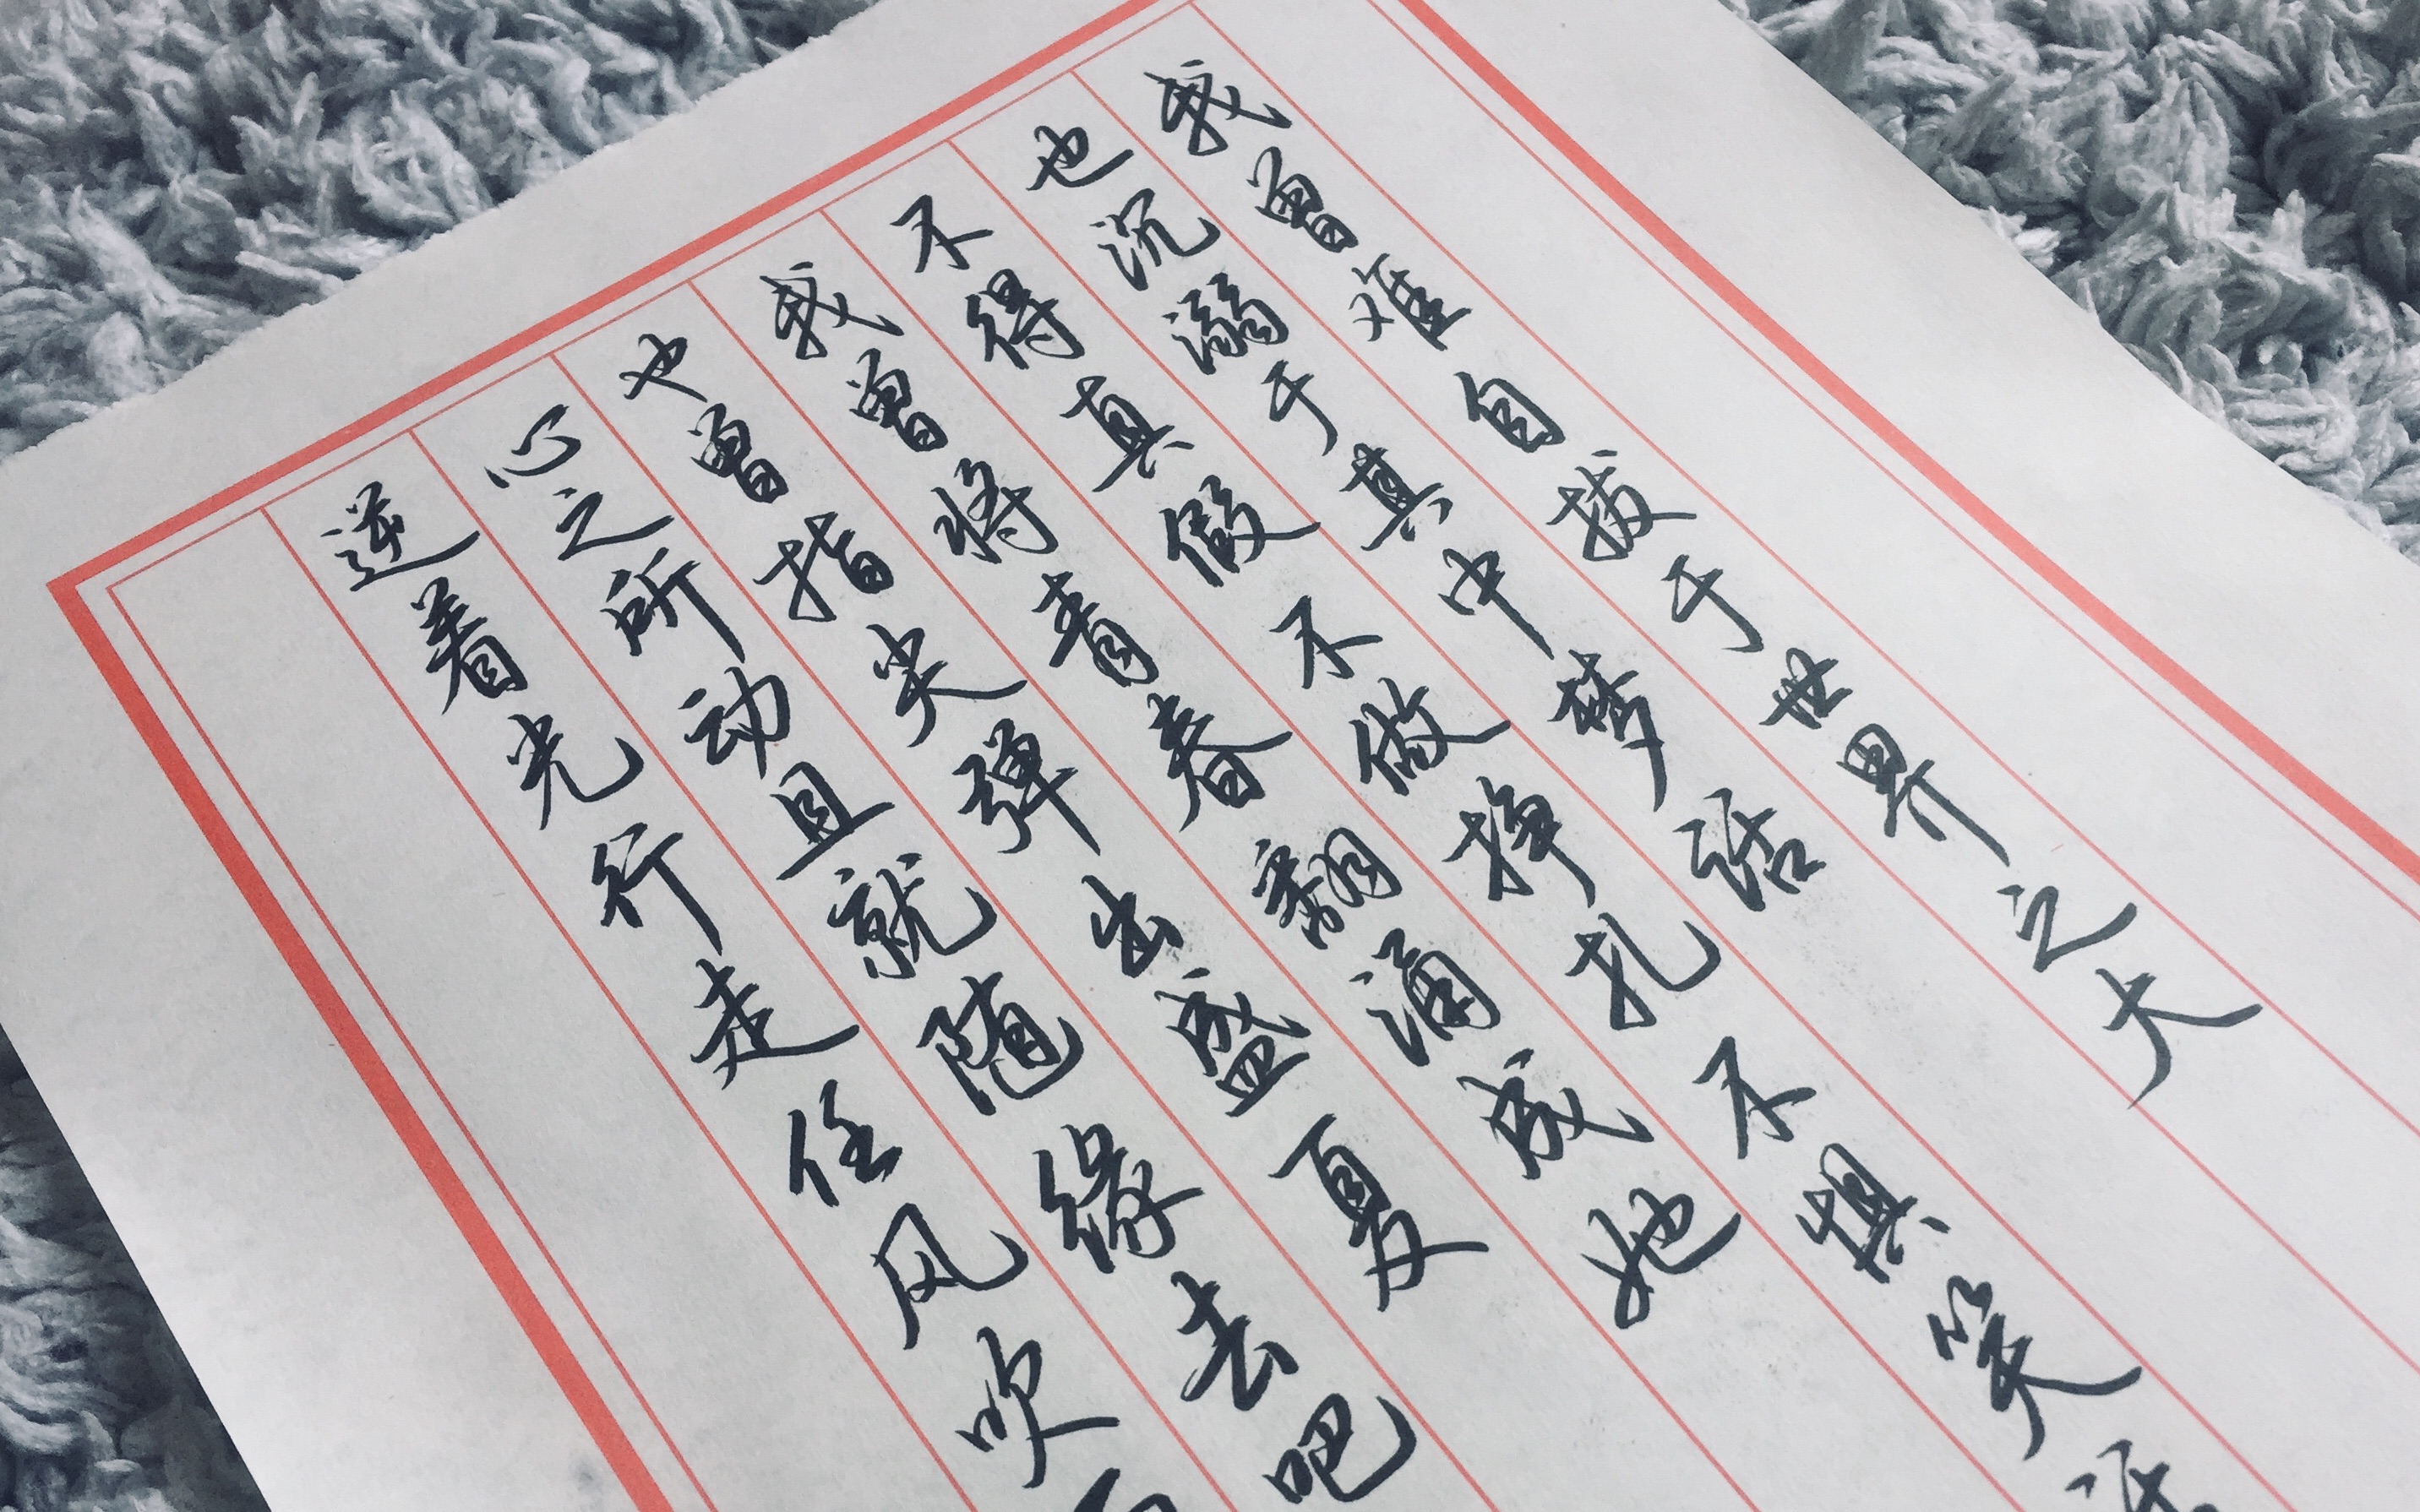 我曾难自拔于世界之大
也沉溺于其中梦话
不得真假不做挣扎不惧笑话
我曾将青春翻涌成她
也曾指尖弹出盛夏
心之所动且就随缘去吧
逆着光行走任风吹雨